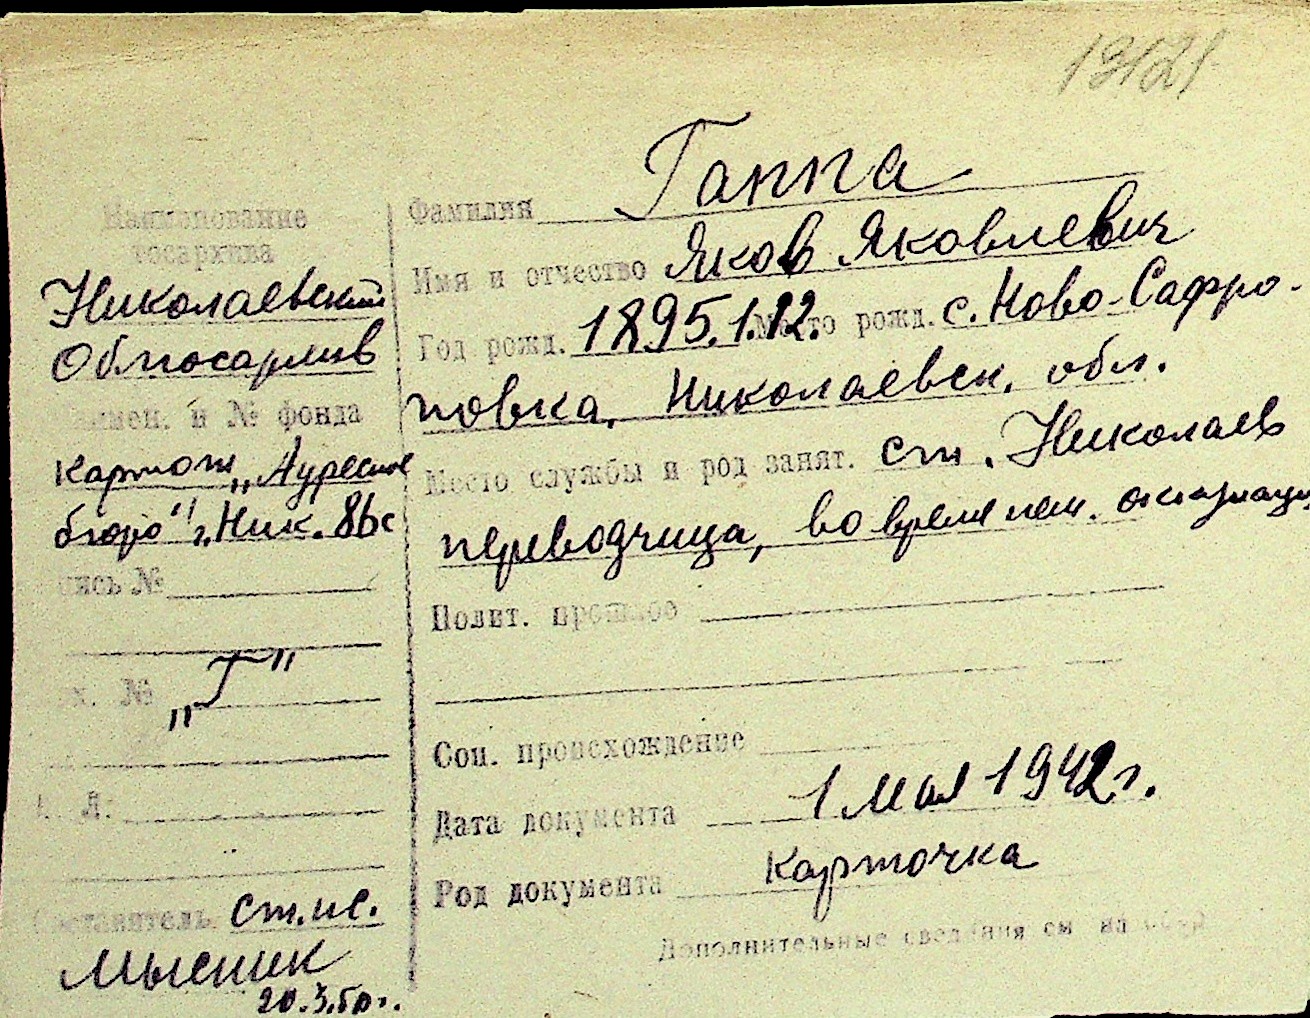 19121
Наименование
госархива
Николаевский
Облгосархив
Наимен. и № фонда
Картот. „Адресное
бюро" г. Ник.
Опись №
„Г"
Составитель ст. н.с.
20.3.50 г.
Фамилия Гаппа
Имя и отчество Яков Яковлевич
Год рожд. 1895.1.12. Место рожд. с. Ново-Сафро-
новка, Николаевск. обл.
Место службы и род занят. ст. Николаев
переводчица, во время нем. оккупации
Полит. прошлое
Соц. происхождение
Дата документа 1 мая 1942 г.
Род документа Карточка
Дополнительные сведения см на обор